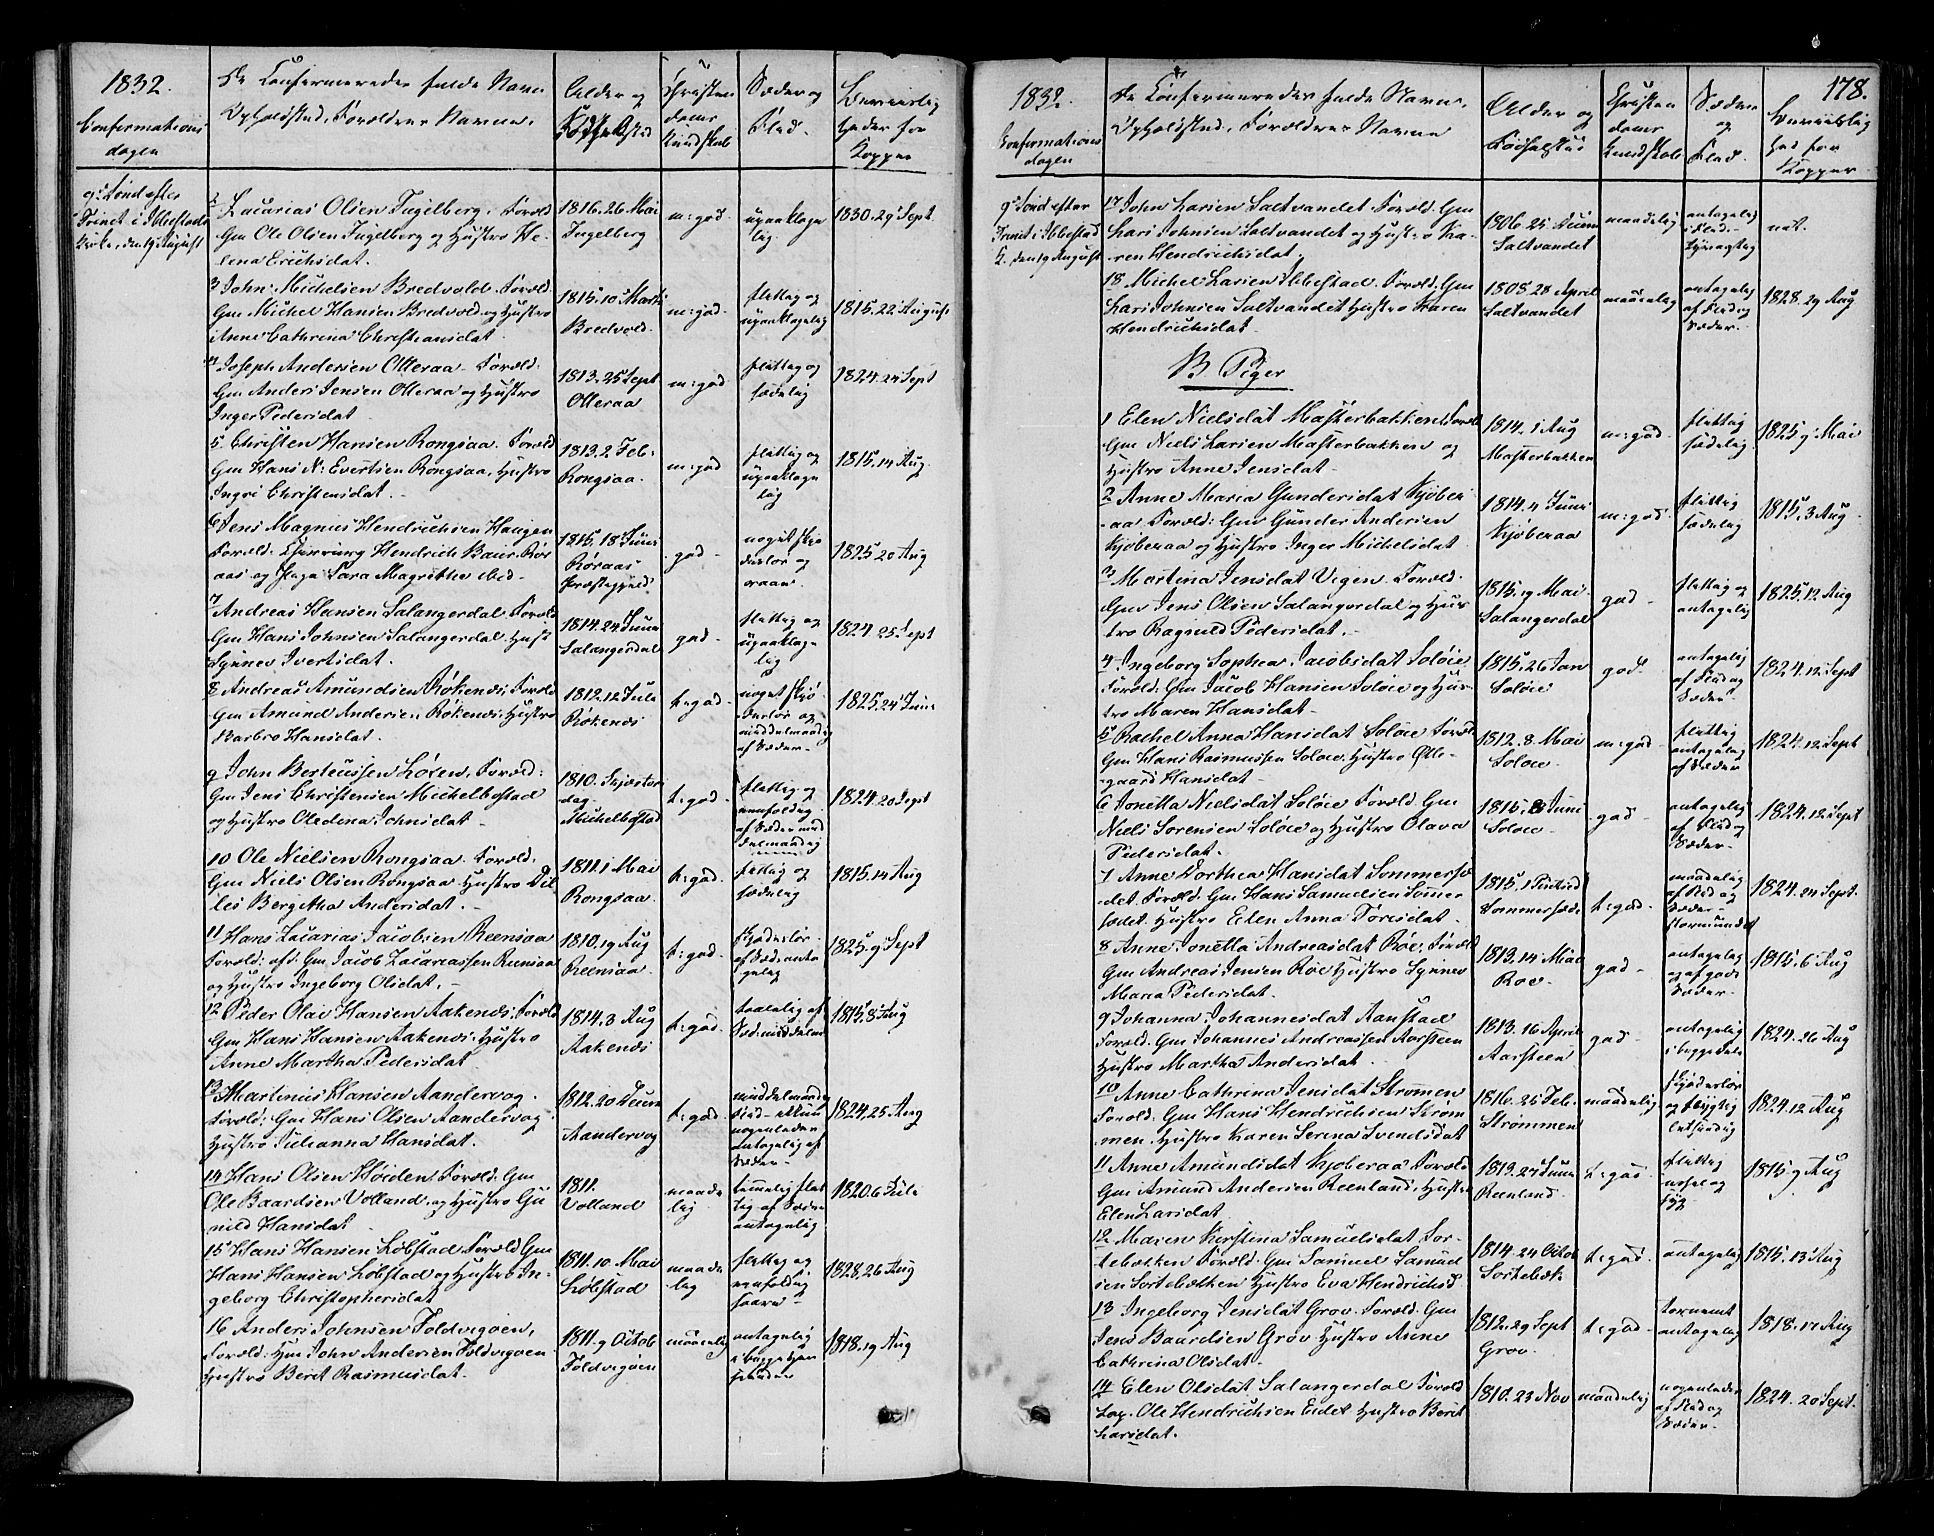 1832.
Confirmations
dagen
De Confirmeredes fulde Navn
Opholdsted, Forældres Navne.
Alder og
Fødselsted
Christen
doms
Kundskab
Sæder og
Flid.
Kopper
9de Sønd efter
Trinit i Ibbestads
Kirke, den 19 August
2 Zacarias Olsen Fugelberg. Foræld
Gm Ole Olsen Fugelberg og Hustro He-
lena Erichsdat.
1816. 26 Mai
Fugelberg
m: god.
upaaklage
lig.
1830. 29 Sept.
3 John Michelsen Bredvold. Foræld
Gm Michel Hansen Bredvold og Hustro
Anne Cathrina Christiansdat
1815. 10 Marti
Bredvold.
m: god.
flittig og
upaaklagelig
1815. 22 August
4 Joseph Andersen Olleraa. Foræld:
Gm Anders Jensen Olleraa og Hustro
Inger Pedersdat
1813. 25 Sept
Olleraa
m: god.
flittig og
sædelig
1824. 24 Sept
5 Christen Hansen Rongsaa. Foræld
Gm Hans N: Evertsen Rongsaa, Hustro
Ingri Christensdat.
1813. 2 Feb:
Rongsaa.
m: god
flittig og
upaaklage
lig
1815. 14 Aug.
6 Jens Magnus Hendrichsen Haugen
Foræld: Hendrich Baur Rør
aas og Sara Magrethe ibid.
1815. 18 Juni
Røraas
Præstegjeld
god
noget skjø
desløs og
1825. 20 Aug
7 Andreas Hansen Salangerdal Foræld
Gm Hans Johnsen Salangerdal. Hust
Synnev Ivertsdat.
1814. 24 Juni
Salangerdal
god.
flittig og
upaaklage
lig
1824. 25 Sept
8 Andreas Amundsen Røkenæs. Foræld
Gm Amund Andersen Røkenæs. Hustro
Barbro Hansdat.
1812. 12 Juli
Røkenæs
t: god.
noget skjø
desløs og
middelmaadig
af Sæder
1825. 24 Juni
9 John Berteussen Løxen, Foræld:
Gm Jens Christensen Michelbostad
og Hustro Oledina Johnsdat
1810.
dag.
Michelbostad
t: god.
flittig og
eenfoldig
af Sæder mid
delmaadig
1824. 20 Sept
10 Ole Nielsen Rongsaa. Foræld:
Gm Niels Olsen Rongsaa Hustro Dil-
les Bergitha Andersdat.
1811. 1 Mai
Rongsaa.
t: god.
flittig og
sædelig
1815. 14 Aug
11 Hans Zacarias Jacobsen Reensaa
Foræld: afd. Gm Jacob Zacariassen Reensaa
og Hustro Ingeborg Olsdat.
1810. 19 Aug
Reensaa
t: god.
skjødesløs
af Sæd: anta
gelig
1825. 9 Sept
12 Peder Olai Hansen Aakenæs. Foræld
Gm Hans Hansen Aakenæs. Hustro
Anne Martha Pedersdat.
1814. 3 Aug
Aakenæs
t: god.
taalelig af
Sæd: middelm
1815. 8 Aug
13 Martinus Hansen Aandervog
Foræld: Gm Hans Olsen Aandervog
Hustro Julianna Hansdat.
1812. 20 Decem
Aandervog
t: god.
middelmaadig
nogenledes
antagelig af
Sæder
1824. 25 Aug
14 Hans Olsen Høiden. Foræld: Gm
Ole Baardsen Volland og Hustro Gu
nild Hansdat
1811.
Volland
maade
lig
temmelig flit
tig. af Sæder
antagelig
1820. 6 Juli
15 Hans Hansen Løbstad Foræld Gm
Hans Hansen Løbstad og Hustro In-
geborg Christophersdat
1811. 10 Mai
Løbstad
maade
lig
flittig og
eenfoldig
1828. 26 Aug
16 Anders Johnsen Foldvigøen,
Foræld: Hm John Andersen Foldvigøen
Hustro Berit Rasmusdat.
1811. 9 Octob
Foldvigøen
maadelig
antagelig
i begge Hen
seender
1818. 19 Aug
178.
1832.
Confirmations
dagen
De Confirmeredes fulde Navn,
Opholdsted, Forældres Navne
Alder og
Fødselsted
Christen
doms
Kundskab
Sæder
og
Flid.
hed for
Kopper
9de Sønd efter
Trinit i Ibbestad
K. den 19 August
17 John Larsen Saltvandet Foræld Gm
Lars Johnsen Saltvandet og Hustro Ka-
ren Hendrichsdat.
1806. 25 Decem
Saltvandet
maadelig
antagelig
i Flid
18 Michel Larsen Ibbestad. Foræld. Gm
Lars Johnsen Saltvandet Hustro Karen
Hendrichsdat
1808. 28 April
Saltvandet
maadelig
antagelig
af Flid og
Sæder.
1828. 29 Aug
B. Piger
1 Elen Nielsdat Masterbakken Foræld
Gm Niels Larsen Masterbakken og
Hustro Anne Jensdat
1814. 1 Aug
Masterbakken
m: god.
flittig
sædelig
1825. 9 Mai
2 Anne Maria Gundersdat Kjøber
aa Foræld: Gm Gunder Andersen
Kjøberaa og Hustro Inger Michelsdat
1814. 4 Juni
Kjøberaa
m: god.
flittig
sædelig
1815. 3 Aug
3 Martina Jensdat Vigen. Foræld.
Gm Jens Olsen Salangerdal og Hus-
tro Ragnild Pedersdat.
1815. 19 Mai
Salangerdal
god
flittig og
antagelig
1825. 12 Aug
4 Ingeborg Sophia Jacobsdat Soløie
Foræld: Gm Jacob Hansen Soløie og Hus-
tro Maren Hansdat
1815. 26 Jan
Soløie
god
antagelig
af Flid og
Sæder
1824. 12 Sept
5 Rachel Anna Hansdat Soløie Foræld
Gm Hans Rasmussen Soløie. Hustro Olle-
gaard Hansdat
1812. 8 Mai
Soløie
m: god
flittig
antagelig
af Sæder
1824. 12 Sept
6 Jonetta Nielsdat Soløie Foræld. Gm
Niels Sørensen Soløie og Hustro Olava
Pedersdat.
1815. 8 Juni
Soløie
god
antagelig
af Flid og
Sæder
1824. 12 Sept
7 Anne Dorthea Hansdat Sommersæ
det. Foræld: Gm Hans Samuelsen Somer
sædet. Hustro Elen Anna Foresdat.
Sommersæde
t: god.
maadelig
af Flid og
Sæder
1824. 24 Sept.
8 Anne Jonetta Andreasdat Røe, Foræld
Gm Andreas Jensen Røe Hustro Synnev
Maria Pedersdat.
1813. 14 Mai
Røe.
god
antagelig
og af gode
Sæder.
1815. 6 Aug
9 Johanna Johannesdat Aanstad
Foræld. Gm Johannes Andreassen Aarsteen
Hustro Martha Andersdat.
1813. 16 April
Aarsteen
god
antagelig
i begge Dele
1824. 26 Aug
10 Anne Cathrina Jensdat Strømen
Foræld. Gm Hans Hendrichsen Strøm-
men. Hustro Karen Serena Svendsdat
1816. 26 Feb.
Strømmen
maadelig
skjødesløs
og flygtig
letsindig
1824. 12 Aug
11 Anne Amundsdat Kjøberaa Foræld
Gm Amund Andersen Reenland, Hustro
Elen Larsdat
1813. 27 Juni
Reenland.
t: god
flittig
1815. 9 Aug
12 Maren Kirstina Samuelsdat Sor-
tebækken Foræld. Gm Samuel Samuel
sen Sortebækken Hustro Eva Hendrichsd
1814. 24 Octob
Sortebæk.
t: god
antagelig
1815. 13 Aug
13 Ingeborg Jensdat Grov. Foræld. Gm
Jens Baardsen Grov Hustro Anne
Cathrina Olsdat.
1812. 29 Sept
Grov.
t: god
antagelig
1818. 17 Aug
14 Elen Olsdat Salangerdal Foræld
Lap. Ole Hendrichsen Eidet Hustro Berit
Larsdat.
1810. 23 Nov
maadelig
nogenledes
af Flid og
Sæder.
1824. 20 Sept.